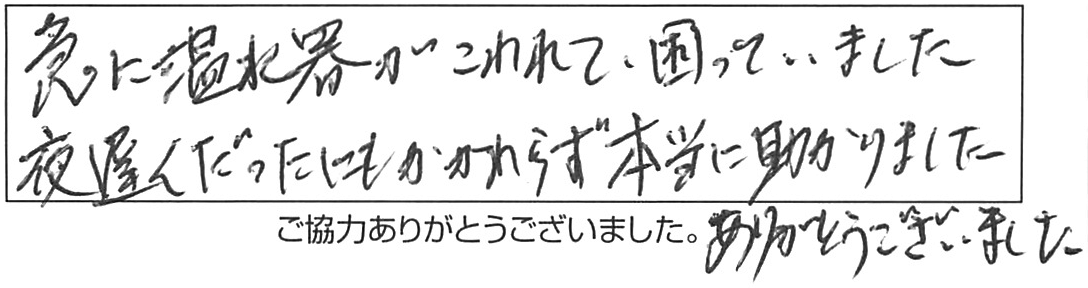 急に温水器がこわれて、困っていました
夜遅くだったにもかかわらず本当に助かりました
ご協力ありがとうございました。ありがとうございました